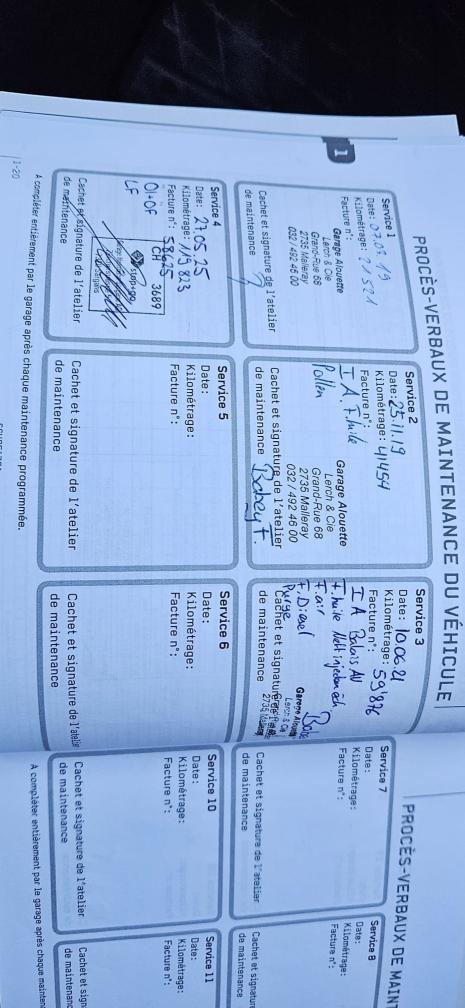 PROCÈS-VERBAUX DE MAINTENANCE DU VÉHICULE
I
Service 1
Date: 07.03.19
Kilométrage: 21521
Facture n°:
Garage Alouette
Lerch & Cie
Grand-Rue 68
2735 Malleray
032 / 492 46 00
Cachet et signature de l'atelier
de maintenance
Service 2
Date: 25.11.19
Kilométrage: 41454
Facture n°:
I A. F. huile
Pollen
Garage Alouette
Lerch & Cie
Grand-Rue 68
2735 Malleray
032 / 492 46 00
Cachet et signature de l'atelier
de maintenance
Service 3
Date: 10.06.21
Kilométrage: 59'876
Facture n°:
I A Balais AV
F. huile
F. air
F. Diesel
Purge
Garage Alouette
Lerch & Cie
Cachet et signature de l'atelier
de maintenance
Service 4
Date: 27.05.25
Kilométrage: 115 823
Facture n°:
OI+OF
LF
CH 3689
Cachet et signature de l'atelier
de maintenance
Service 5
Date:
Kilométrage:
Facture n°:
Cachet et signature de l'atelier
de maintenance
Service 6
Date:
Kilométrage:
Facture n°:
Cachet et signature de l'atelier
de maintenance
A compléter entièrement par le garage après chaque maintenance programmée.
1-20
PROCÈS-VERBAUX DE MAINT
Service 7
Date:
Kilométrage:
Facture n°:
Cachet et signature de l'atelier
de maintenance
Service 8
Date:
Kilométrage:
Facture n°:
Cachet et signatur
de maintenanc
Service 10
Date:
Kilométrage:
Facture n°:
Cachet et signature de l'atelier
de maintenance
Service 11
Date:
Kilométrage:
Facture n°:
Cachet et sign
de maintenan
A compléter entièrement par le garage après chaque mainten